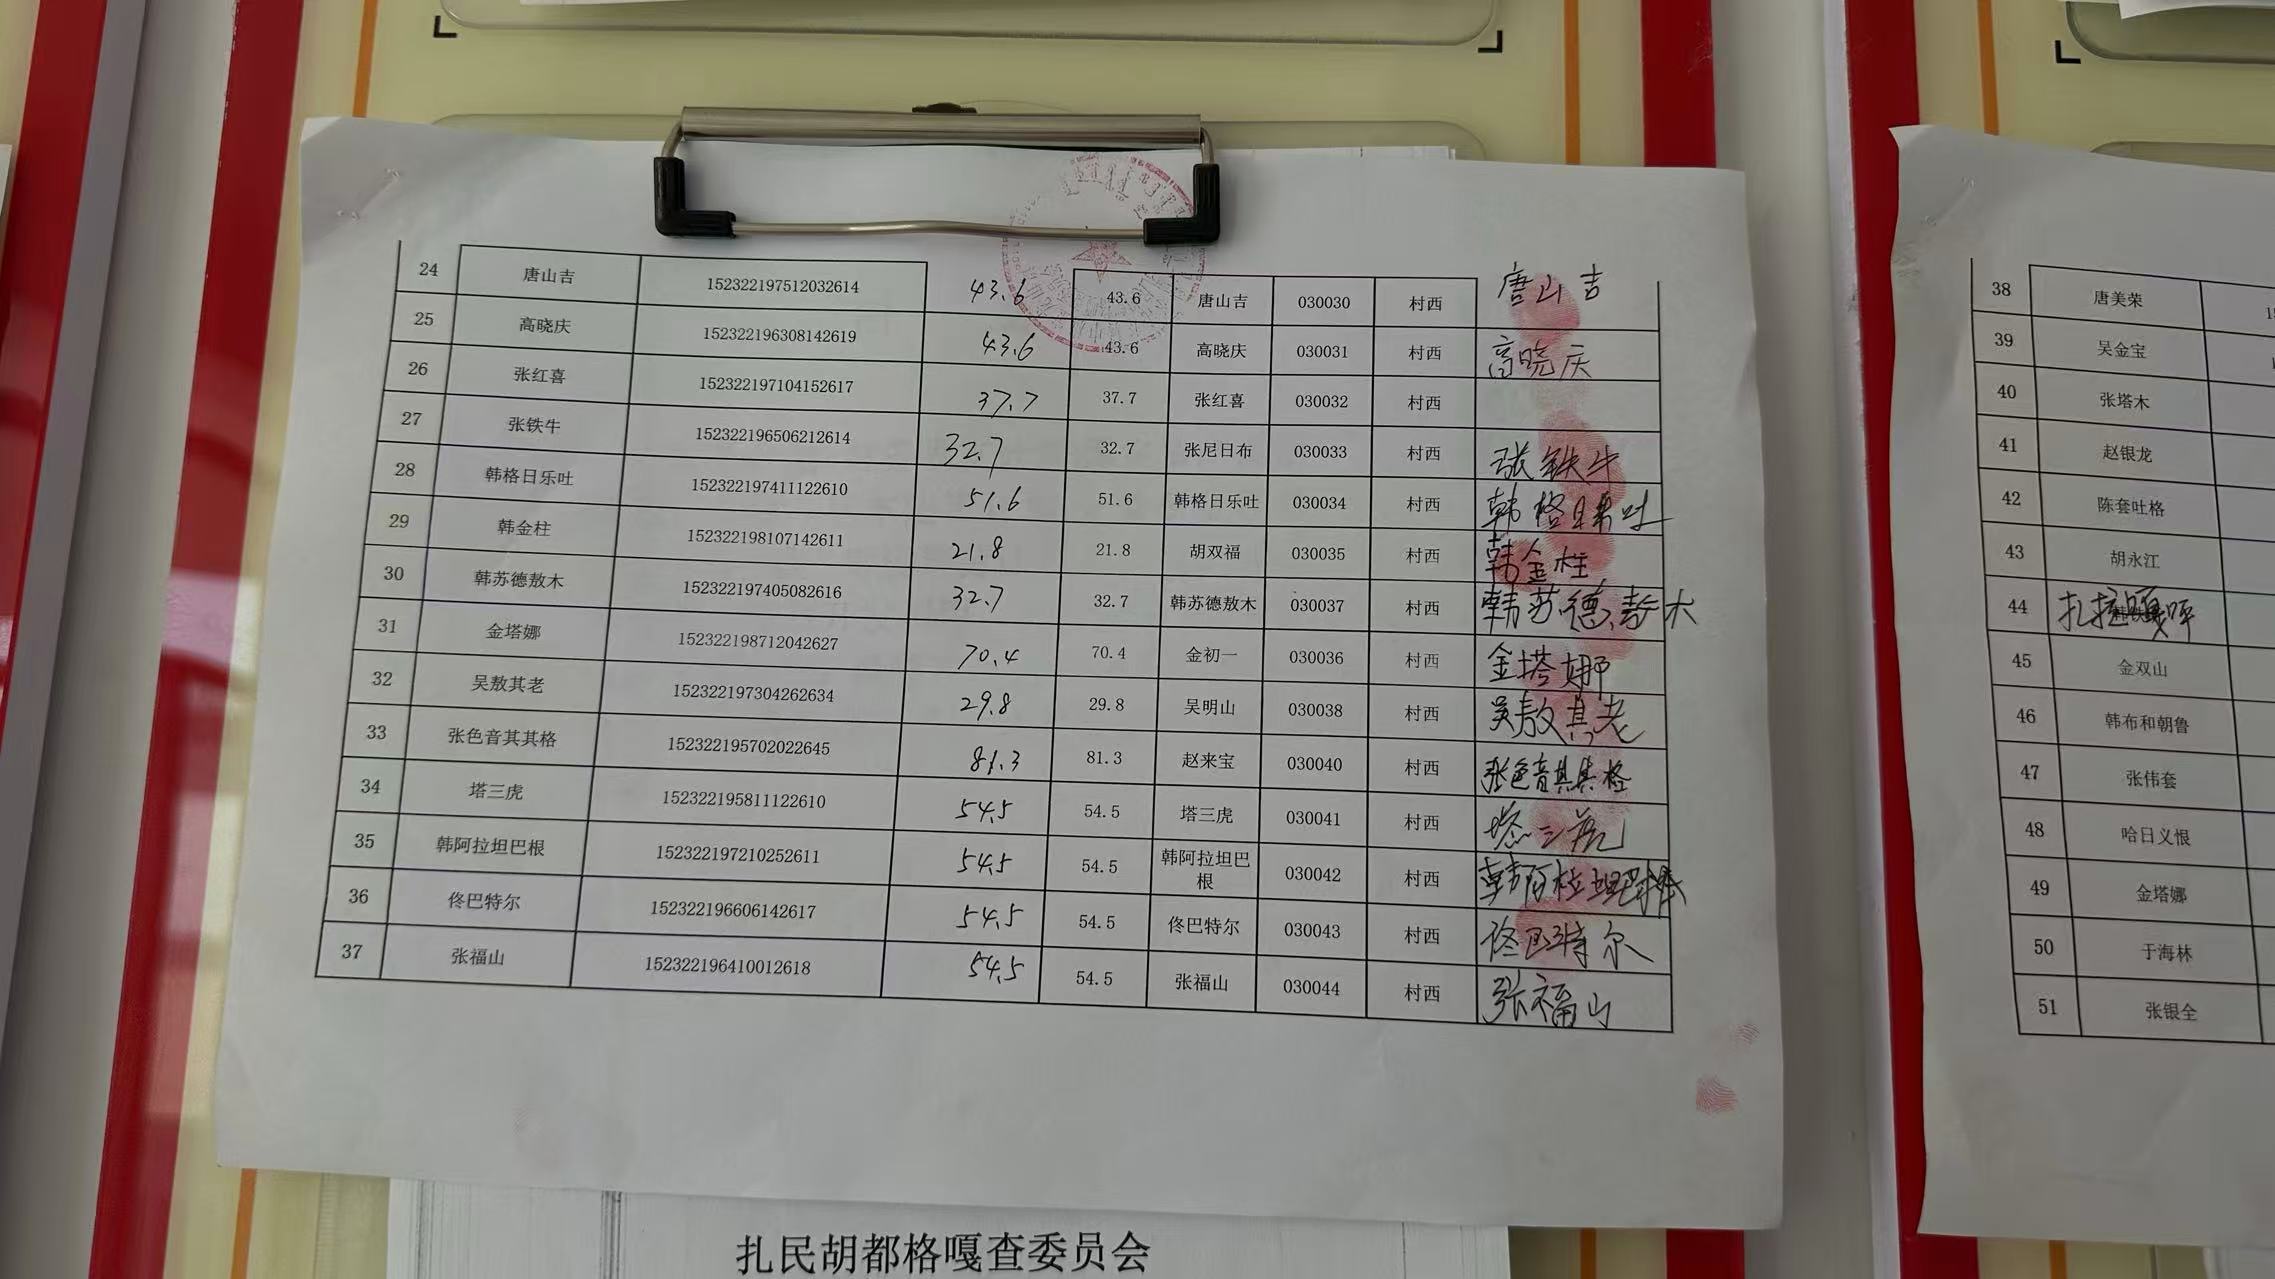 24 唐山吉 152322197512032614 43.6 43.6 唐山吉 030030 村西 唐山吉
25 高晓庆 152322196308142619 43.6 43.6 高晓庆 030031 村西 高晓庆
26 张红喜 152322197104152617 37.7 37.7 张红喜 030032 村西
27 张铁牛 152322196506212614 32.7 32.7 张尼日布 030033 村西 张铁牛
28 韩格日乐吐 152322197411122610 51.6 51.6 韩格日乐吐 030034 村西 韩格日乐吐
29 韩金柱 152322198107142611 21.8 21.8 胡双福 030035 村西 韩金柱
30 韩苏德敖木 152322197405082616 32.7 32.7 韩苏德敖木 030037 村西 韩苏德敖木
31 金塔娜 152322198712042627 70.4 70.4 金初一 030036 村西 金塔娜
32 吴敖其老 152322197304262634 29.8 29.8 吴明山 030038 村西 吴敖其老
33 张色音其其格 152322195702022645 81.3 81.3 赵来宝 030040 村西 张色音其其格
34 塔三虎 152322195811122610 54.5 54.5 塔三虎 030041 村西 塔三虎
35 韩阿拉坦巴根 152322197210252611 54.5 54.5 韩阿拉坦巴根 030042 村西 韩阿拉坦巴根
36 佟巴特尔 152322196606142617 54.5 54.5 佟巴特尔 030043 村西 佟巴特尔
37 张福山 152322196410012618 54.5 54.5 张福山 030044 村西 张福山
扎民胡都格嘎查委员会
38 唐美荣
39 吴金宝
40 张塔木
41 赵银龙
42 陈套吐格
43 胡永江
44
45 金双山
46 韩布和朝鲁
47 张伟套
48 哈日义恨
49 金塔娜
50 于海林
51 张银全